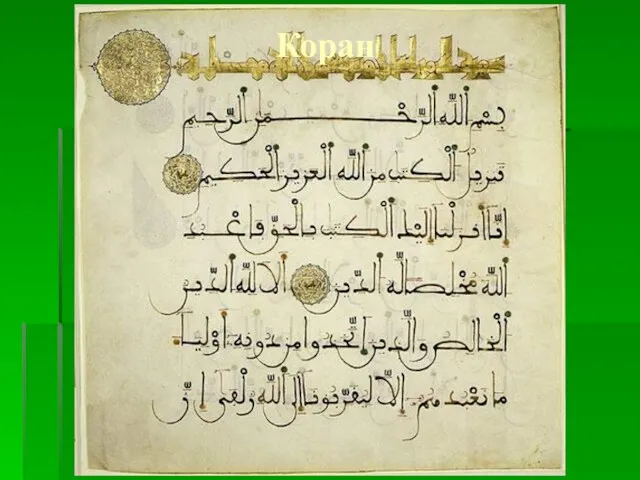 Коран
بِسْمِ اللَّهِ الرَّحْمَٰنِ الرَّحِيمِ
تنزيل الكتب من الله العزيز الحكيم
إنا أنزلنا إليك الكتب بالحق فاعبد
الله مخلصا له الدين ألا لله الدين
الخالص والذين اتخذوا من دونه أوليا
ما نعبدهم إلا ليقربونا إلى الله زلفى إن